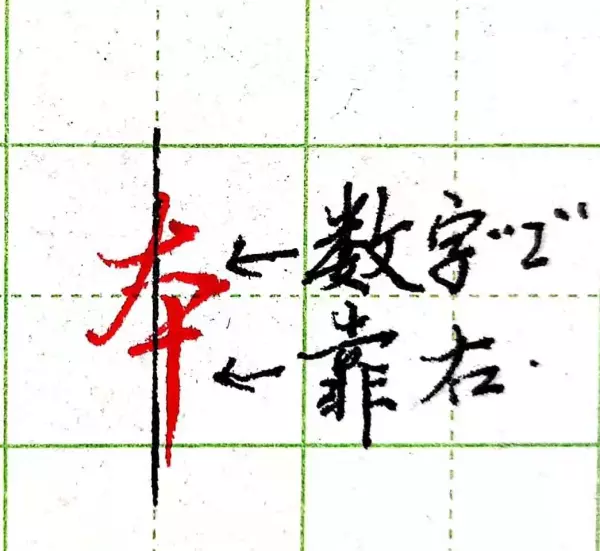 本
← 数字“2”
← 靠右.